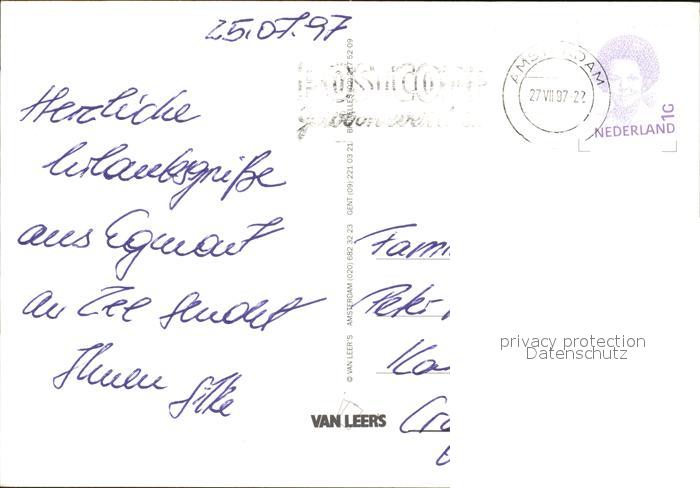 25.07.97
Herzliche
Urlaubsgrüße
aus Egmont
an Zee sendet
Ihnen Silke
© VAN LEER'S AMSTERDAM (020) 682 32 23 GENT (09) 221 03 21
VAN LEER'S
AMSTERDAM
27 VII 97-22
NEDERLAND
1G
Fami
Peter
Ka
privacy protection
Datenschutz